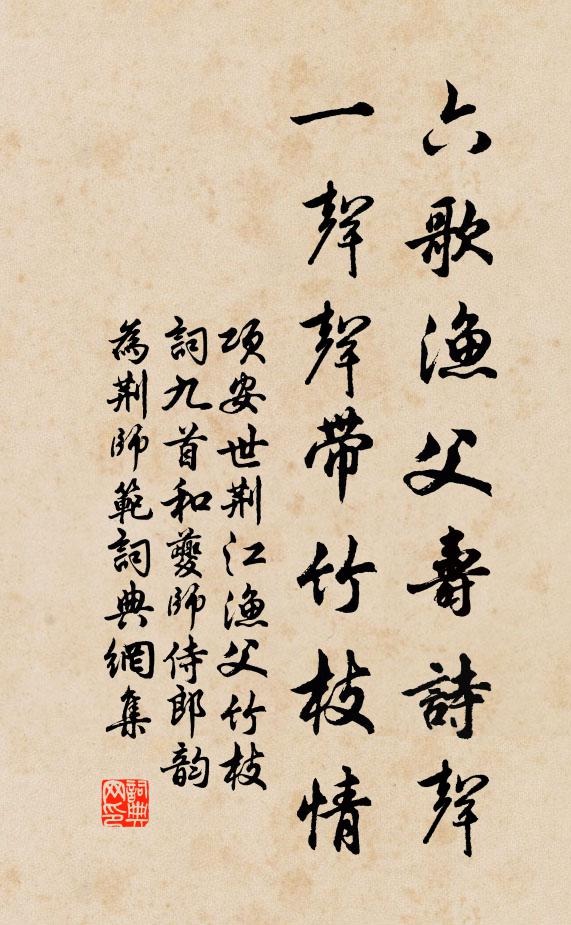 六歌漁父壽詩聲
一聲聲帶竹枝情
項安世荆江漁父竹枝
詞九首和夔師侍郎韵
為荆師範詞典網集
詞典
网印